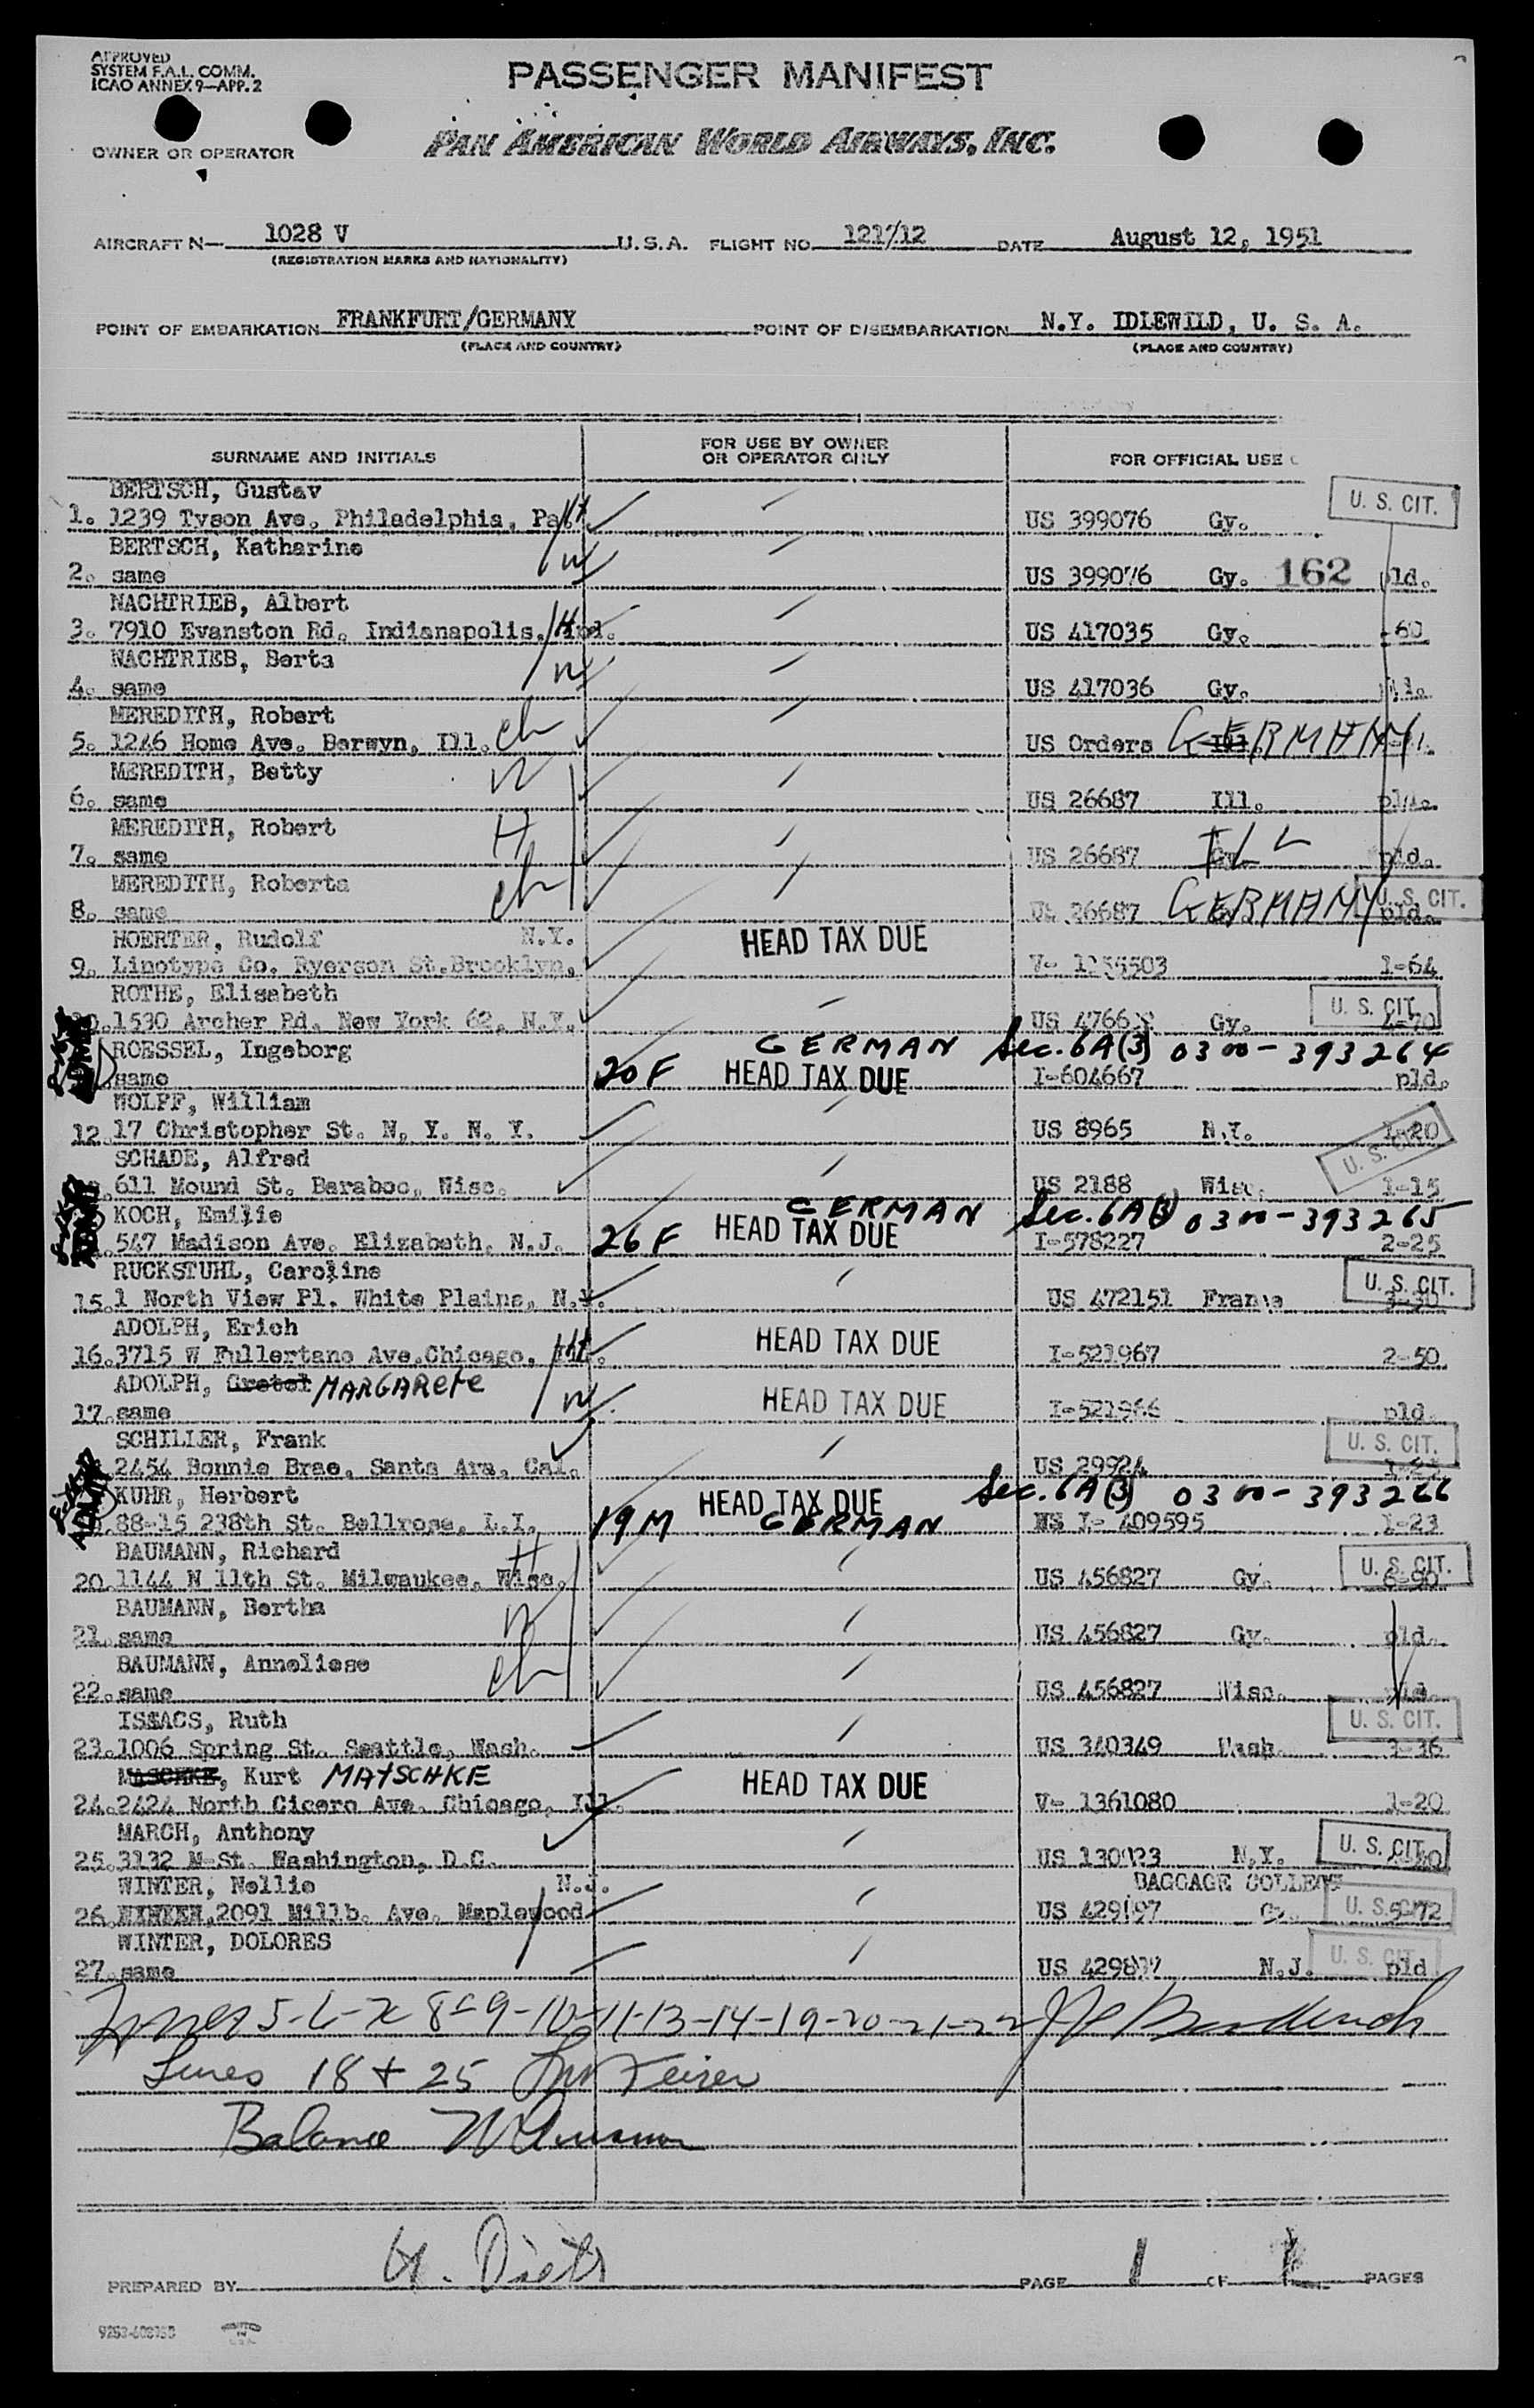 APPROVED
SYSTEM F.A.L. COMM.
ICAO ANNEX 9—APP. 2
PASSENGER MANIFEST
OWNER OR OPERATOR
PAN AMERICAN WORLD AIRWAYS, INC.
AIRCRAFT N— 1028 V U.S.A. FLIGHT NO. 121/12 DATE August 12, 1951
(REGISTRATION MARKS AND NATIONALITY)
POINT OF EMBARKATION FRANKFURT/GERMANY POINT OF DISEMBARKATION N.Y. IDLEWILD, U. S. A.
(PLACE AND COUNTRY) (PLACE AND COUNTRY)
SURNAME AND INITIALS FOR USE BY OWNER OR OPERATOR ONLY FOR OFFICIAL USE
BERTSCH, Gustav U. S. CIT.
1. 1239 Tyson Ave. Philadelphia, Pa. H US 399076 Gy.
BERTSCH, Katharine W
2. same US 399076 Gy. 162 pld.
NACHTRIEB, Albert
3. 7910 Evanston Rd. Indianapolis, Ind. H US 417035 Gy. -60
NACHTRIEB, Berta W
4. same US 417036 Gy.
MEREDITH, Robert ch
5. 1246 Home Ave. Berwyn, Ill. US Orders GERMANY
MEREDITH, Betty W
6. same US 26687 Ill.
MEREDITH, Robert H
7. same US 26687 ILL pld.
MEREDITH, Roberta ch
8. same US 26687 GERMANY U. S. CIT. pld.
HOERTER, Rudolf N.Y. HEAD TAX DUE
9. Linotype Co. Ryerson St.Brooklyn, 1-64
ROTHE, Elisabeth U. S. CIT.
1530 Archer Rd. New York 62, N.Y. Gy.
ROESSEL, Ingeborg GERMAN Sec. 6A(3) 0300-393264
same 20 F HEAD TAX DUE I-604667 pld.
WOLFF, William
12. 17 Christopher St. N. Y. N. Y. US 8965 N.Y. 1-20 U. S. CIT.
SCHADE, Alfred
611 Mound St. Baraboo, Wisc. US 2188 Wisc. 1-15
KOCH, Emilie GERMAN Sec. 6A(3) 0300-393265
547 Madison Ave. Elizabeth, N.J. 26 F HEAD TAX DUE I-578227 2-25
RUCKSTUHL, Caroline U. S. CIT.
15. 1 North View Pl. White Plains, N.Y. US 472151 France
ADOLPH, Erich HEAD TAX DUE
16. 3715 W Fullertano Ave.Chicago, I-521967 2-50
ADOLPH, Gretel MARGARETE W HEAD TAX DUE
17. same I-521966 pld.
SCHILLER, Frank U. S. CIT.
2454 Bonnie Brae, Santa Ara, Cal. US 29924
KUHR, Herbert HEAD TAX DUE Sec. 6A(3) 0300-393266
88-15 238th St. Bellrose, L.I. 19 M GERMAN I- 409595 1-23
BAUMANN, Richard H U. S. CIT.
20. 1144 N 11th St. Milwaukee, Wisc. US 456827 Gy.
BAUMANN, Bertha W
21. same US 456827 Gy. pld.
BAUMANN, Anneliese ch
22. same US 456827 Wisc. pld.
ISAACS, Ruth U. S. CIT.
23. 1006 Spring St. Seattle, Wash. US 340349 Wash. 3-36
MASCHKE, Kurt MATSCHKE HEAD TAX DUE
24. 2424 North Cicero Ave. Chicago, Ill. V- 1361080 1-20
MARCH, Anthony U. S. CIT.
25. 3132 M-St. Washington, D.C. N.Y.
WINTER, Nellie N.J. BAGGAGE COLLECT
26. 2091 Millb. Ave. Maplewood U. S. CIT. 5-72
WINTER, DOLORES U. S. CIT.
27. same N.J. pld
5-6-7 8-9-10-11-13-14-19-20-21-22
Lines 18 + 25
Balance
PREPARED BY PAGE 1 OF 1 PAGES